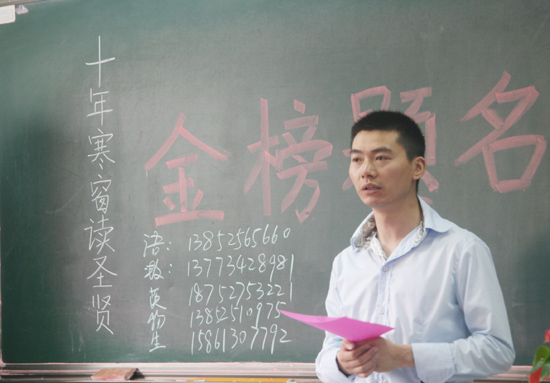 十年寒窗读圣贤
金榜题名
语: 13852565660
数: 13773428981
英 18752753221
物 13852510975
生 15861307792